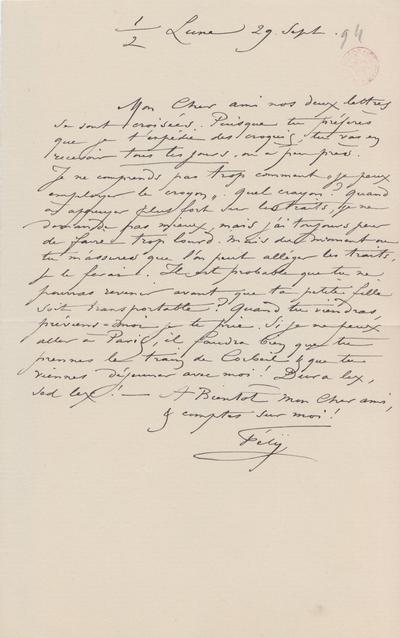 1/2 Lune 29 Sept. 94
Mon Cher ami nos deux lettres
se sont croisées. Puisque tu préfères
que je t'expédie des croquis, tu vas en
recevoir tous les jours, ou à peu près.
Je ne comprends pas trop comment "je peux
employer le crayon". Quel crayon? Quand
à appuyer plus fort sur les traits, je ne
demande pas mieux, mais j'ai toujours peur
de faire trop lourd. Mais du moment où
tu m'assures que l'on peut alléger les traits,
je le ferai. Il est probable que tu ne
pourras revenir avant que ta petite fille
soit transportable? Quand tu viendras,
préviens-moi je te prie. Si je ne peux
aller à Paris, il faudra bien que tu
prennes le train de Corbeil & que tu
viennes déjeuner avec moi! Dura lex,
sed lex! — A Bientôt mon Cher ami,
& comptes sur moi!
Fély